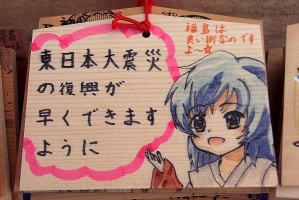 東日本大震災
の復興が
早くできます
ように
福島は
良い街なのです
よ〜